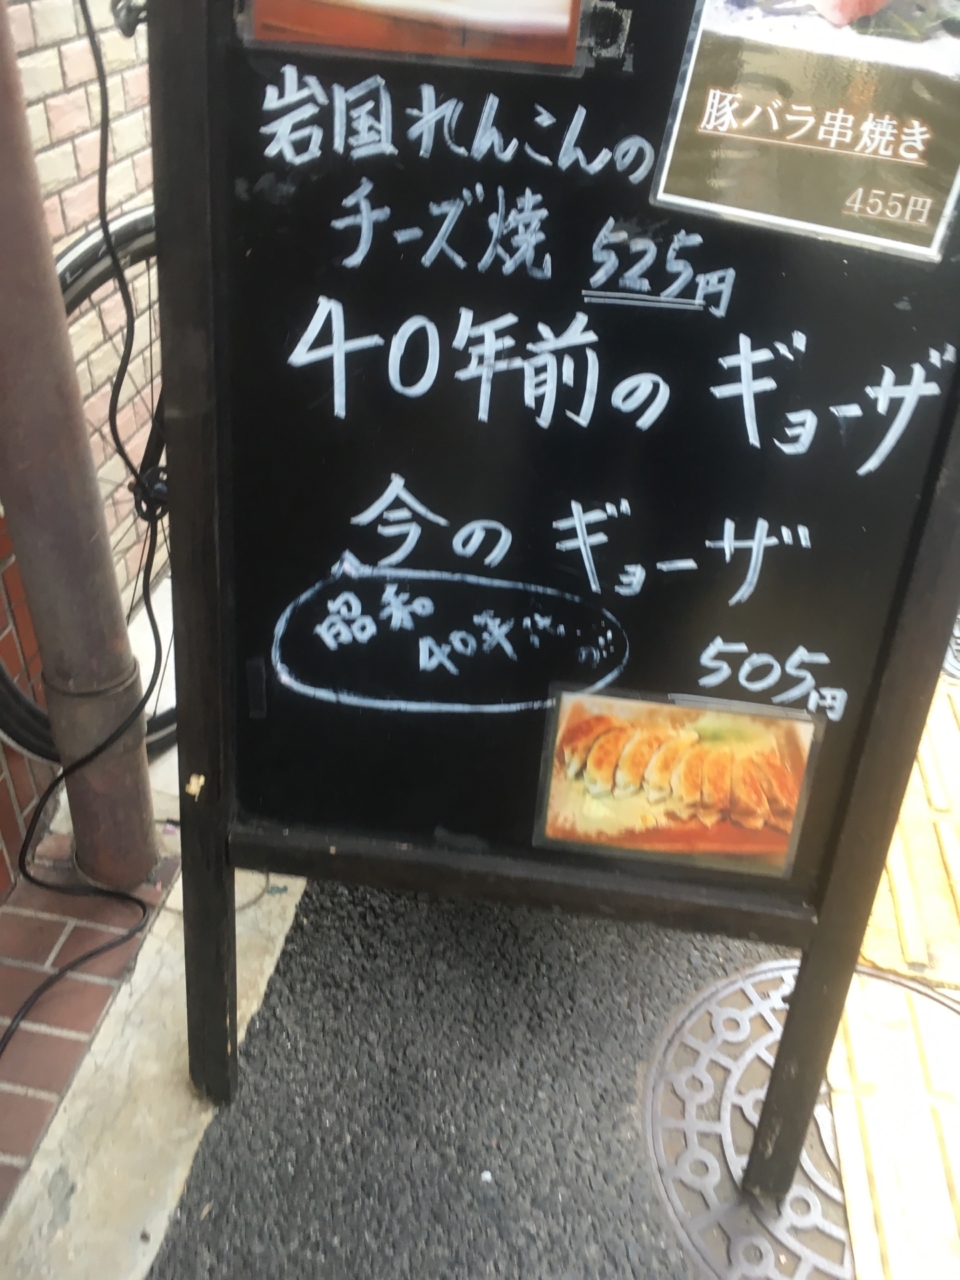 豚バラ串焼き
455円
岩国れんこんの
チーズ焼 525円
40年前のギョーザ
今のギョーザ
昭和
40年代
505円